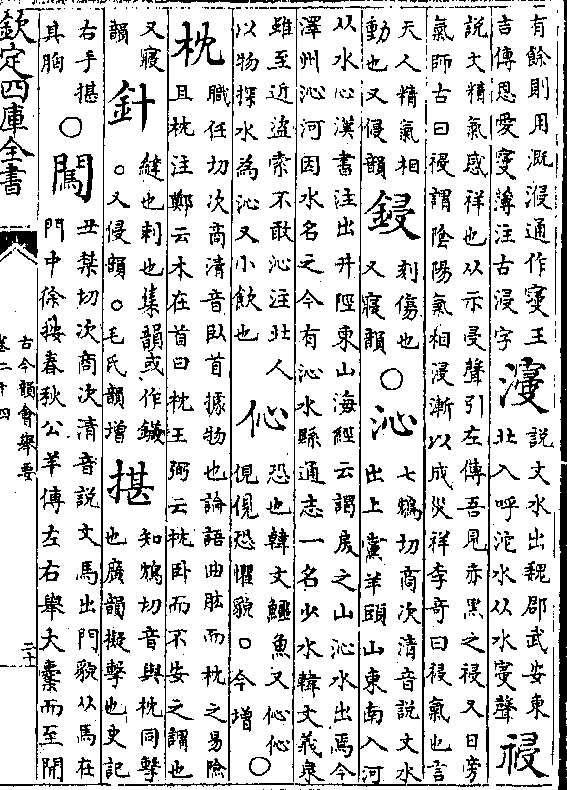 有餘則用溉浸通作寖王
吉傳恩愛寖薄注古浸字
濅
說文水出魏郡武安東
北入呼沱水从水寑聲
祲
說文精氣感祥也从示𠬶聲引左傳吾見赤黑之祲又日旁
氣師古曰祲謂陰陽氣相浸漸以成災祥李奇曰祲氣也言
天人精氣相
動也又侵韻
鋟
刺傷也
又寢韻
○沁
七鴆切商次清音說文水
出上黨羊頭山東南入河
从水心漢書注出井陘東山海經云謁戾之山沁水出焉今
澤州沁河因水名之今有沁水縣通志一名少水韓文義泉
雖至近盜索不敢沁注北人
以物探水為沁又小飲也
伈
恐也韓文鱷魚又伈伈
俔俔恐懼貌○今增
○
枕
職任切次商清音臥首據物也論語曲肱而枕之易險
且枕注鄭云木在首曰枕王弼云枕卧而不安之謂也
又寢
韻
針
縫也刺也集韻或作鍼
○又侵韻○毛氏韻增
揕
知鴆切音與枕同擊
也廣韻擬擊也史記
右手揕
其胸
○闖
丑禁切次商次清音說文馬出門貌从馬在
門中徐按春秋公羊傳左右舉大橐而至開
欽定四庫全書
古今韻會舉要
卷二十四